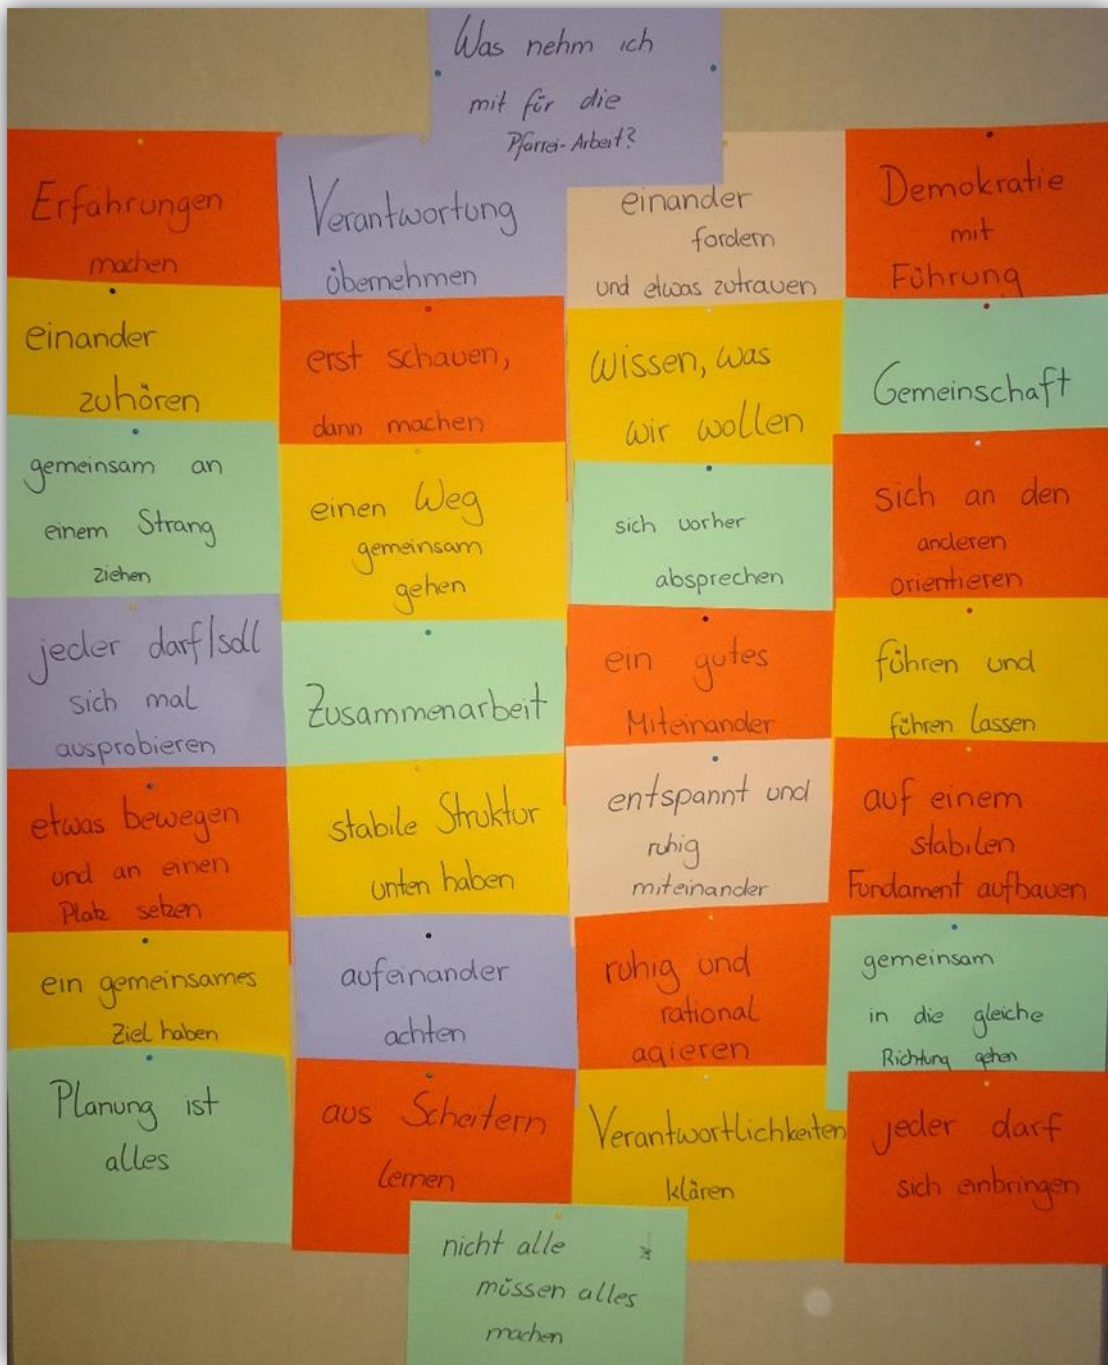 Was nehm ich
mit für die
Pfarrei-Arbeit?
Erfahrungen
machen
einander
zuhören
gemeinsam an
einem Strang
ziehen
jeder darf/soll
sich mal
ausprobieren
etwas bewegen
und an einen
Platz setzen
ein gemeinsames
Ziel haben
Planung ist
alles
Verantwortung
übernehmen
erst schauen,
dann machen
einen Weg
gemeinsam
gehen
Zusammenarbeit
stabile Struktur
unten haben
aufeinander
achten
aus Scheitern
lernen
einander
fordern
und etwas zutrauen
Wissen, was
wir wollen
sich vorher
absprechen
ein gutes
Miteinander
entspannt und
ruhig
miteinander
ruhig und
rational
agieren
Verantwortlichkeiten
klären
Demokratie
mit
Führung
Gemeinschaft
sich an den
anderen
orientieren
führen und
führen lassen
auf einem
stabilen
Fundament aufbauen
gemeinsam
in die gleiche
Richtung gehen
jeder darf
sich einbringen
nicht alle
müssen alles
machen